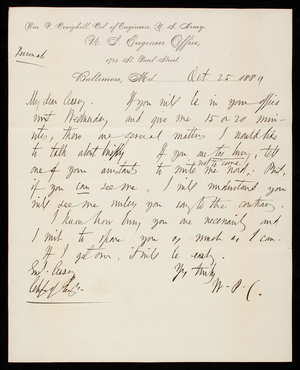 Wm. P. Craighill, Col. of Engineers, U. S. Army.
U. S. Engineer Office,
Personal
1725 St. Paul Street
Baltimore, Md. Oct 25 1889
My dear Casey. If you will be in your office
next Wednesday and give me 15 or 20 min-
utes, there are several matters I would like
to talk about briefly. If you are too busy, tell
not to come
one of your assistants to write me word. But,
if you can see me, I will understand you
will see me unless you say to the contrary.
I know how busy you are necessarily and
I wish to spare you as much as I can.
If I get over, it will be early.
Genl. Casey Yrs truly
Chf of Engs. W. P. C.